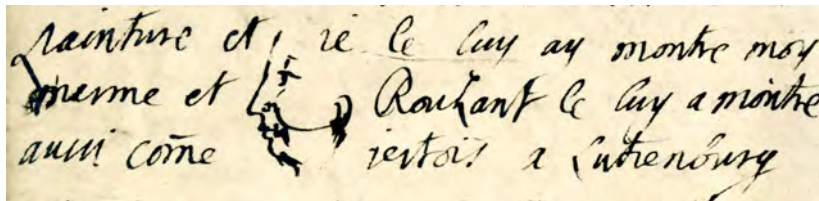 painture et ie le luy ay montre moy
mesme et Rouhant le luy a montre
aussi come iestois a Lutzenburg